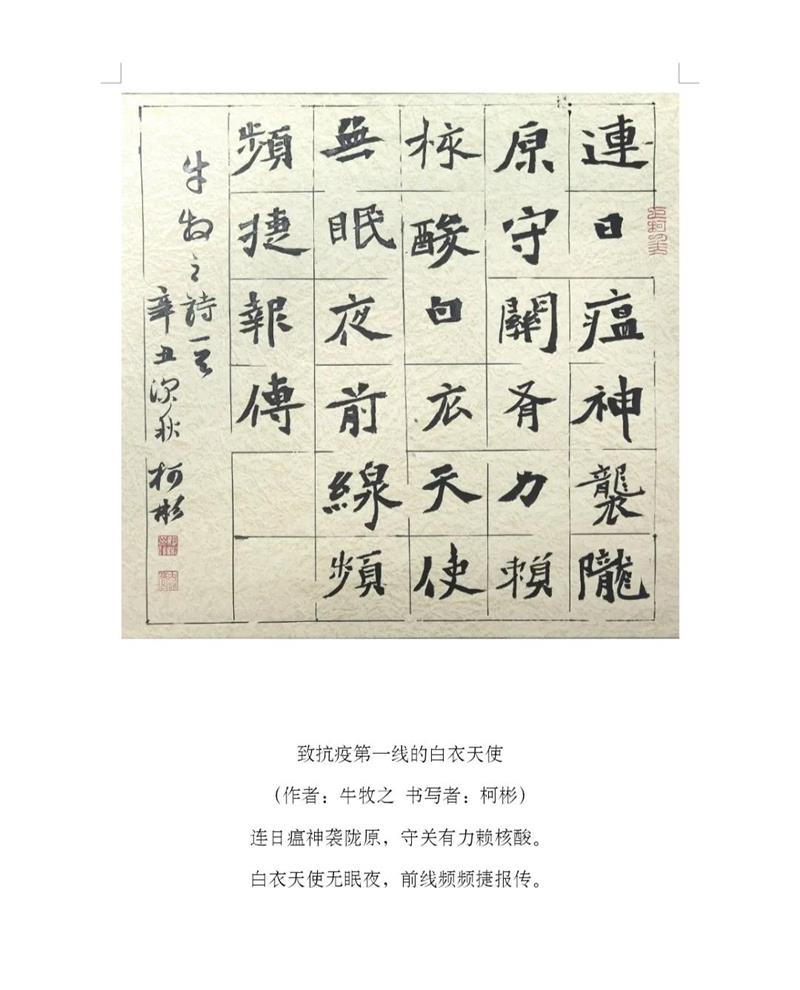 連日瘟神襲隴
原守關有力賴
核酸白衣天使
無眠夜前線頻
頻捷報傳
牛牧之詩一首
辛丑深秋柯彬
致抗疫第一线的白衣天使
(作者：牛牧之 书写者：柯彬)
连日瘟神袭陇原，守关有力赖核酸。
白衣天使无眠夜，前线频频捷报传。